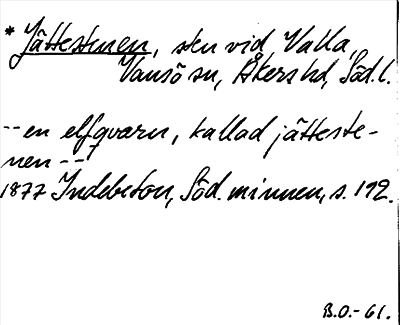 * Jättestenen, sten vid Valla,
Vansö sn, Åkers hd, Söd.l.
-- en elfqvarn, kallad jätteste-
nen --
1877 Indebetou, Söd. minnen, s. 192.
B.O.-61.